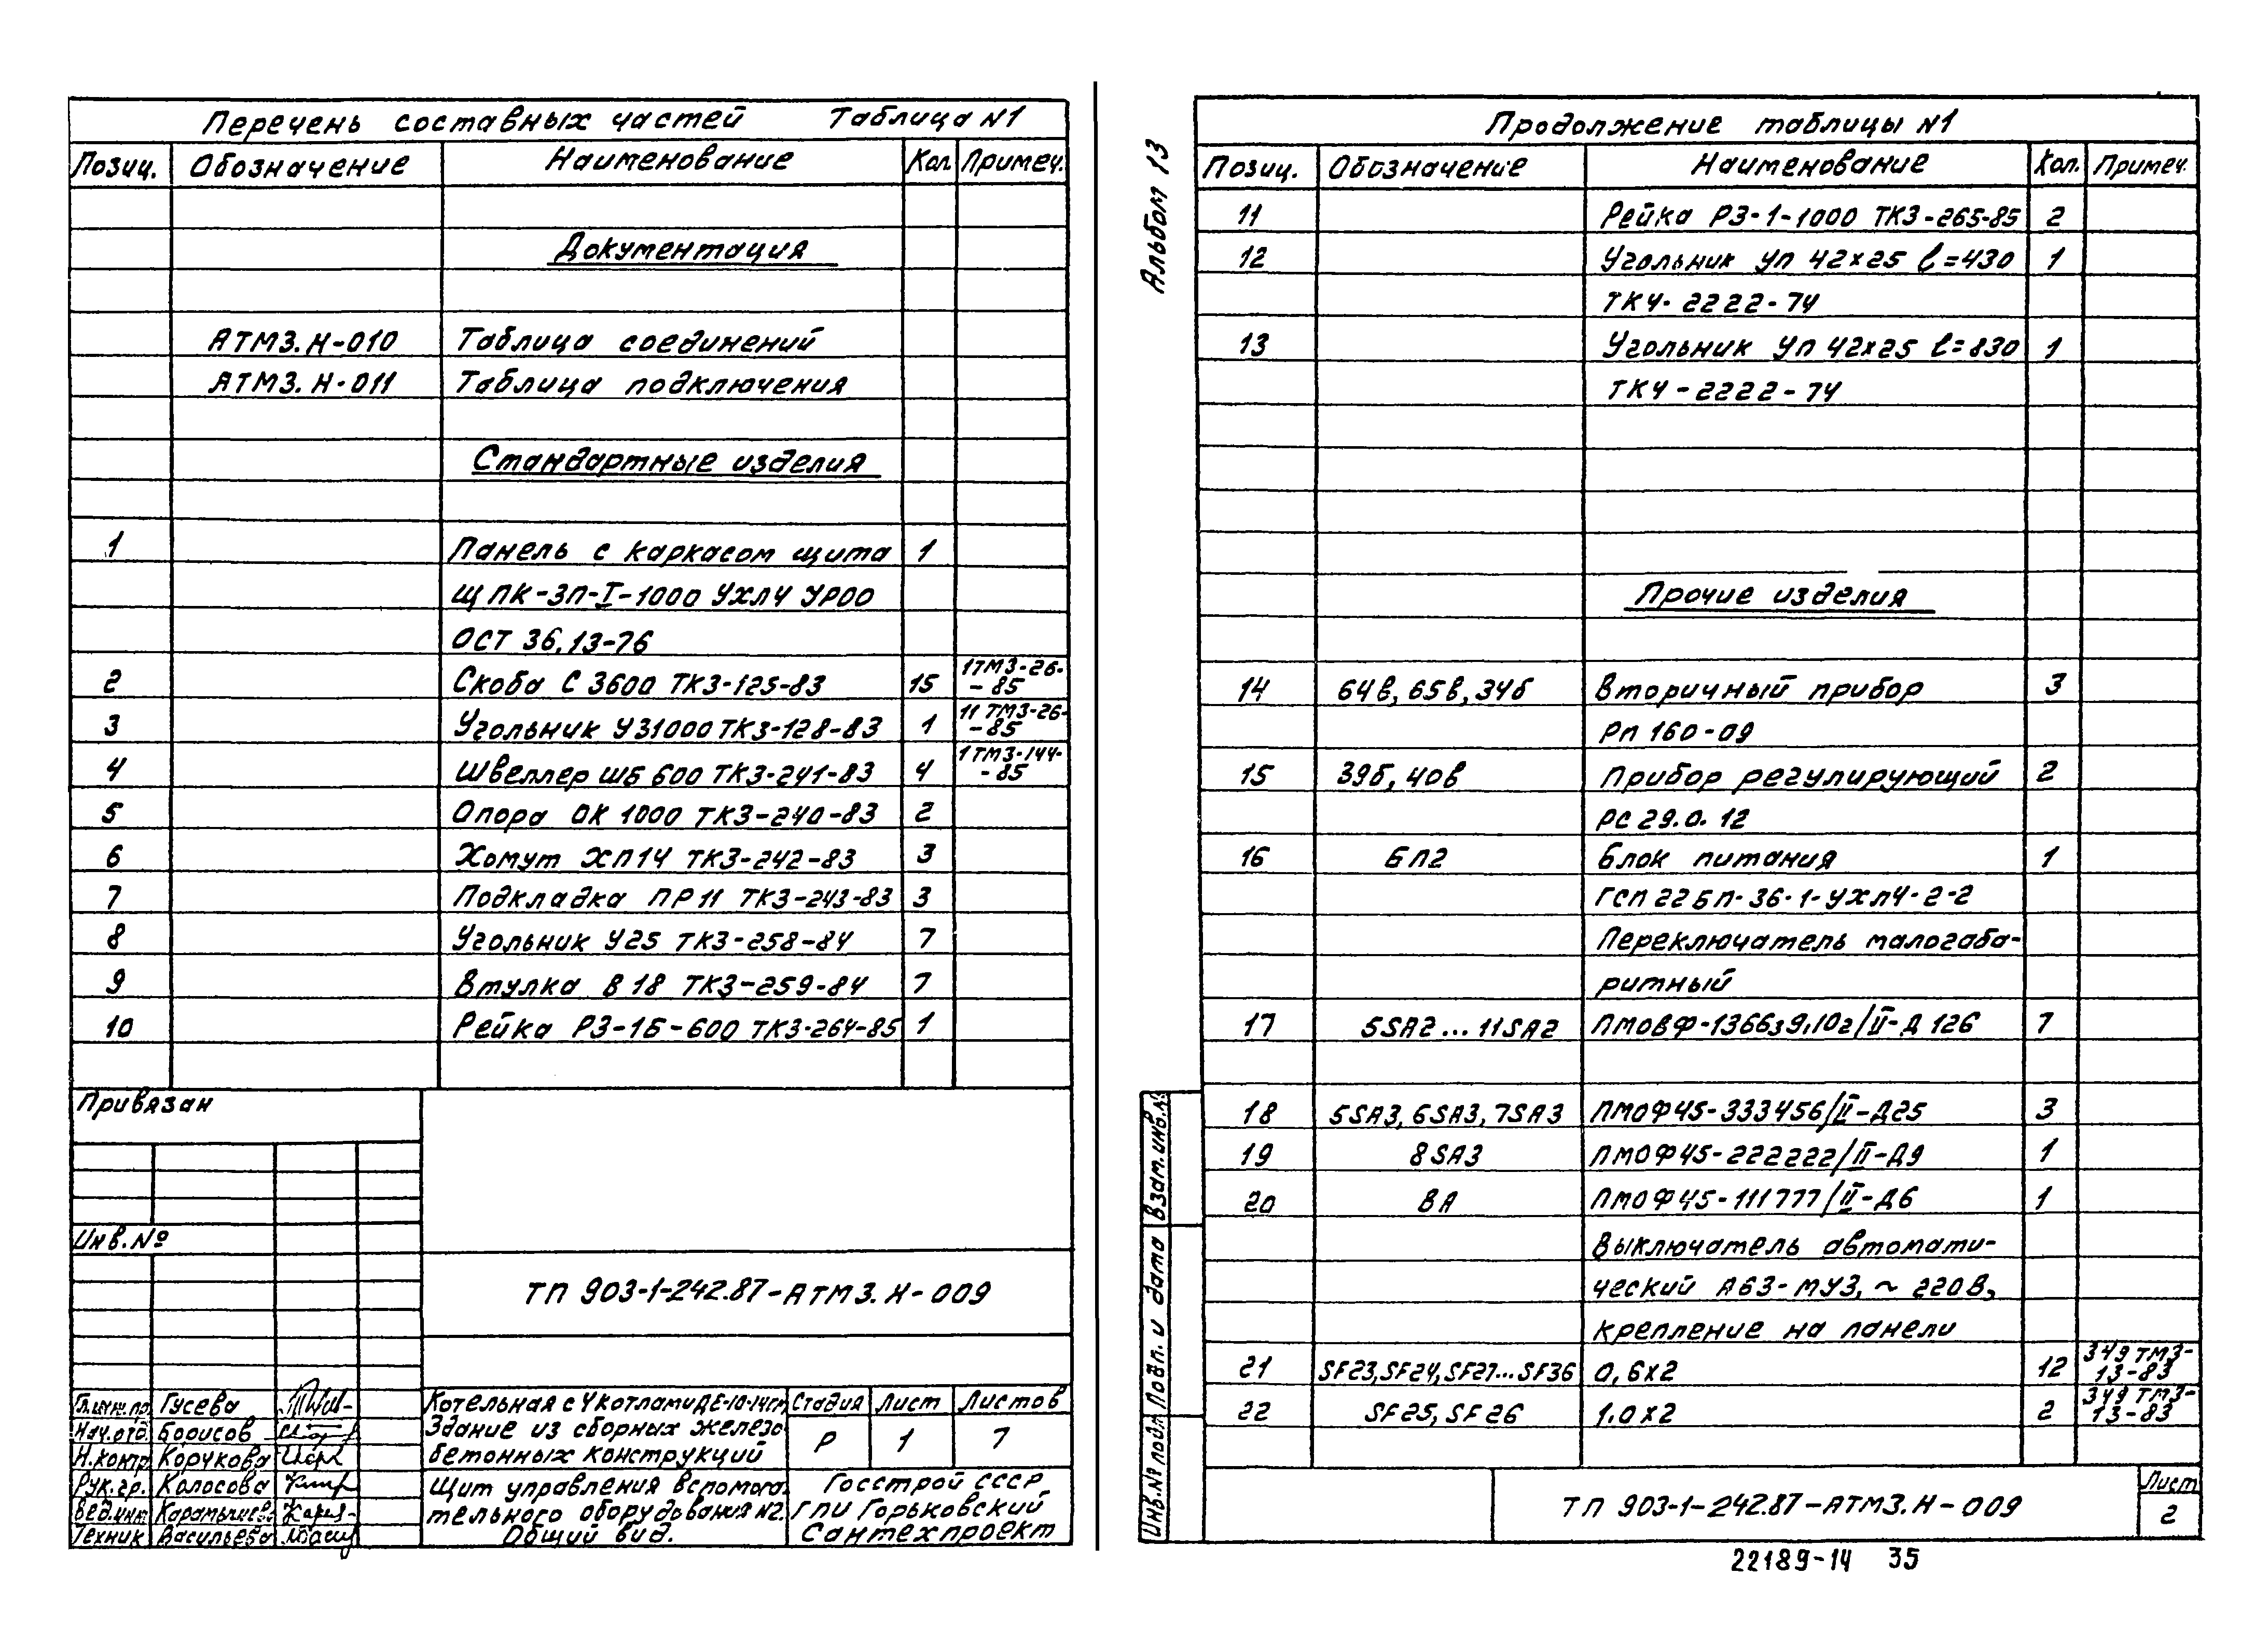 Перечень составных частей Таблица N1
Позиц. Обозначение Наименование Кол. Примеч.
Документация
АТМ3.Н-010 Таблица соединений
АТМ3.Н-011 Таблица подключения
Стандартные изделия
1 Панель с каркасом щита 1
ЩПК-ЗП-I-1000 УХЛ4 УР00
ОСТ 36.13-76
2 Скоба С3600 ТК3-125-83 15 1ТМ3-26-
-85
3 Угольник У31000 ТК3-128-83 1 11ТМ3-26-
-85
4 Швеллер ШБ 600 ТК3-241-83 4 1ТМ3-144-
-85
5 Опора ОК 1000 ТК3-240-83 2
6 Хомут ХП14 ТК3-242-83 3
7 Подкладка ПР11 ТК3-243-83 3
8 Угольник У25 ТК3-258-84 7
9 Втулка В18 ТК3-259-84 7
10 Рейка Р3-1Б-600 ТК3-264-85 1
Привязан
Инв.№
ТП 903-1-242.87-АТМ3.Н-009
Гл.инж.пр. Гусева
Нач.отд. Борисов
Н.контр. Корчкова
Рук.гр. Колосова
Вед.инж.
Техник Васильева
Котельная с 4 котлами ДЕ-10-14гм
Здание из сборных железо
бетонных конструкций
Стадия Лист Листов
Р 1 7
Щит управления вспомога-
тельного оборудования №2.
Общий вид.
Госстрой СССР
ГПИ Горьковский
Сантехпроект
Альбом 13
Продолжение таблицы N1
Позиц. Обозначение Наименование Кол. Примеч.
11 Рейка Р3-1-1000 ТК3-265-85 2
12 Угольник УП 42х25 ℓ=430 1
ТК4-2222-74
13 Угольник УП 42х25 ℓ=830 1
ТК4-2222-74
Прочие изделия
14 64в, 65в, 34б Вторичный прибор 3
РП 160-09
15 39б, 40в Прибор регулирующий 2
РС29.0.12
16 БП2 Блок питания 1
ГСП 22БП-36-1-УХЛ4-2-2
Переключатель малогаба-
ритный
17 5SA2...11SA2 ПМОВФ-1366з9,10г/II-Д126 7
18 5SA3, 6SA3, 7SA3 ПМОФ45-333456/II-Д25 3
19 8SA3 ПМОФ45-222222/II-Д9 1
20 ВА ПМОФ45-111777/II-Д6 1
Выключатель автомати-
ческий А63-МУ3, ~220В,
крепление на панели
21 SF23, SF24, SF27...SF36 0,6х2 12 349ТМ3-
13-83
22 SF25, SF26 1.0х2 2 349ТМ3-
13-83
ТП 903-1-242.87-АТМ3.Н-009
Лист
2
Инв.№ подл. Подп. и дата Взам.инв.№
22189-14 35